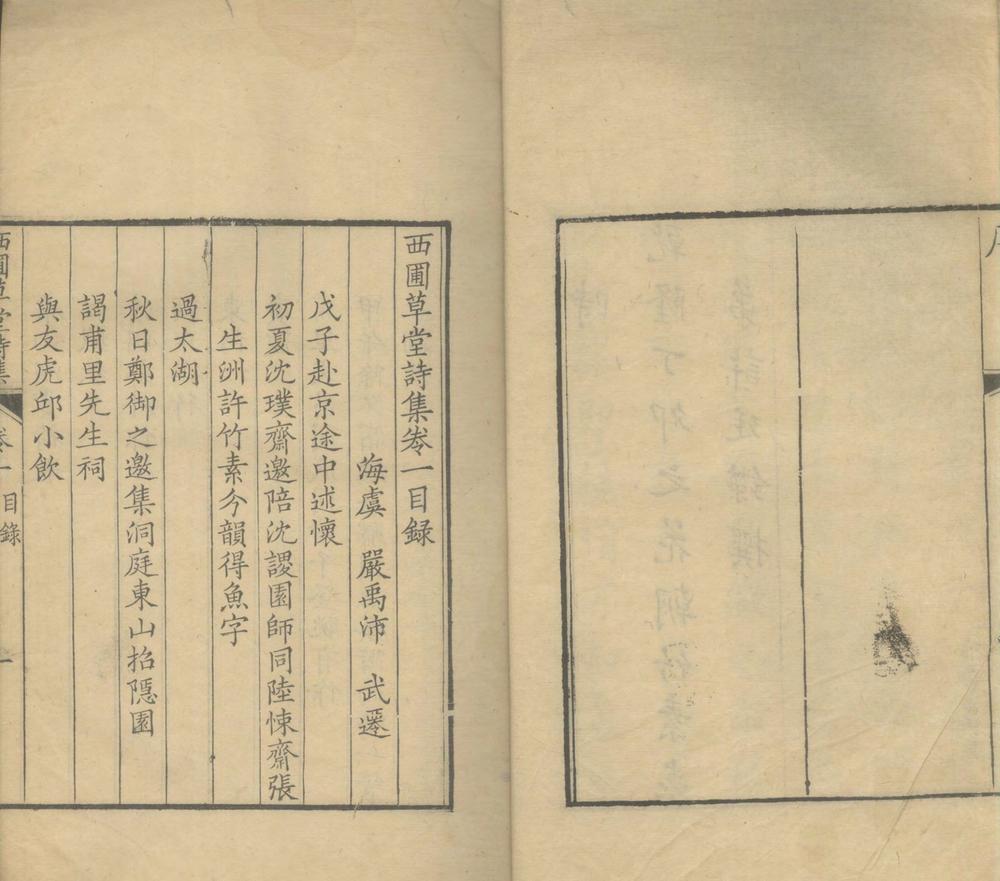 序
西圃草堂詩集卷一目録
海虞 嚴禹沛 武遷
戊子赴京途中述懷
初夏沈璞齋邀陪沈謖園師同陸悚齋張
生洲許竹素今韻得魚字
過太湖
秋日鄭御之邀集洞庭東山招隱園
謁甫里先生祠
與友虎邱小飲
西圃草堂詩集 卷一 目錄 一